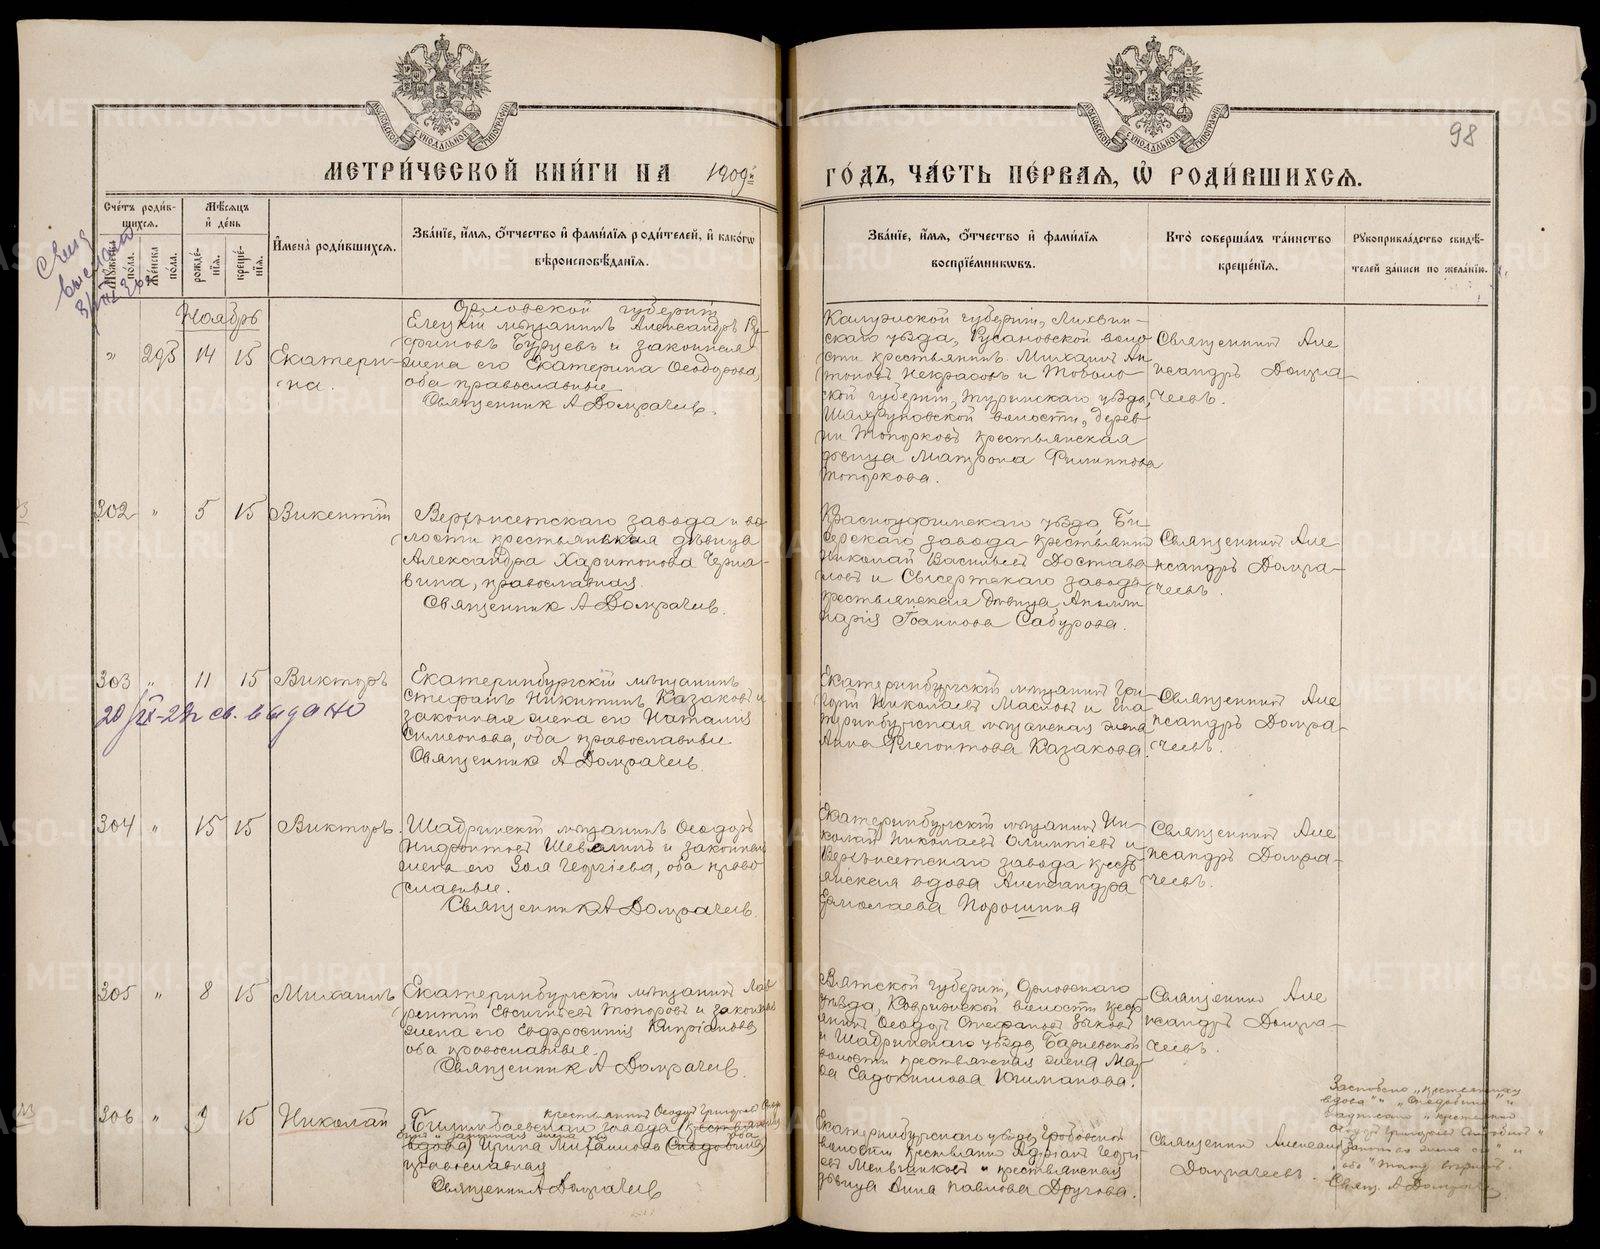 98
МЕТРИ́ЧЕСКОЙ КНИ́ГИ НА 1909й ГО́ДЪ, ЧА́СТЬ ПЕ́РВАЯ, Ѡ҆ РОДИ́ВШИХСЯ.
Сче́тъ роди́вшихся.
Му́жеска по́ла.
Же́нска по́ла.
Мѣ́сяцъ и҆ де́нь
рожде́нїя.
креще́нїя.
И҆мена̀ роди́вшихся.
Зва́нїе, и҆́мя, ѻ҆́тчество и҆ фами́лїя роди́телей, и҆ како́гѡ
вѣроисповѣ́данїя.
Зва́нїе, и҆́мя, ѻ҆́тчество и҆ фами́лїя
воспрїе́мниковъ.
Кто̀ соверша́лъ та́инство
креще́нїя.
Рукоприкла́дство свидѣ́-
телей за́писи по жела́нїю.
Ноябрь
" 295 14 15 Екатери-
на.
Орловской губерніи
Елецкій мѣщанинъ Александръ Ру-
финовъ Бурцевъ и законная
жена его Екатерина Ѳеодорова,
оба православные
Священник А Домрачев.
Калужской губерніи, Лихвин-
скаго уѣзда, Русановской воло-
сти крестьянинъ Михаилъ Ан-
тоновъ Некрасовъ и Тоболь-
ской губерніи, Туринскаго уѣзда,
волости, дерев-
ни Топорковъ крестьянская
дѣвица Матрона Филиппова
Топоркова.
Священникъ Але
ксандръ Домра-
чевъ.
302 " 5 15 Викентій
Верхъисетскаго завода и во-
лости крестьянская дѣвица
Александра Харитонова Черна-
вина, православная.
Священник А Домрачев.
Красноуфимскаго уѣзда Би-
серскаго завода крестьянинъ
Николай Васильевъ Достава-
ловъ и Сысертскаго завода
крестьянская дѣвица Аполли
нарія Іоаннова Сабурова.
Священникъ Але
ксандръ Домра-
чевъ.
303 " 11 15 Викторъ
20/IX-22г св. выдано
Екатеринбургскій мѣщанинъ
Стефанъ Никитинъ Казаковъ и
законная жена его Наталія
Симеонова, оба православные
Священник А Домрачев.
Екатеринбургскій мѣщанинъ Гри-
горій Николаевъ Масловъ и Ека-
теринбургская мѣщанская жена
Анна Флегонтова Казакова.
Священникъ Але
ксандръ Домра-
чевъ.
304 " 15 15 Викторъ.
Шадринскій мѣщанинъ Ѳеодоръ
Нифонтовъ Шевалинъ и законная
жена его Зоя Георгіева, оба право-
славные.
Священник А Домрачев.
Екатеринбургскій мѣщанинъ Ни-
колай Николаевъ Олимпіевъ и
Верхъисетскаго завода кресть-
янская вдова Александра
Ермолаева Порошина
Священникъ Але
ксандръ Домра-
чевъ.
305 " 8 15 Михаилъ
Екатеринбургскій мѣщанинъ Лав-
рентій Евсигніевъ Топоровъ и законная
жена его Евфросинія Кипріанова,
оба православные.
Священник А Домрачев.
Вятской губерніи, Орловскаго
уѣзда, волости крест-
янинъ Ѳеодотъ Стефановъ Зыковъ
и Шадринскаго уѣзда,
волости крестьянская жена Мар-
ѳа Евдокимова
Священникъ Але
ксандръ Домра-
чевъ.
306 " 9 15 Николай
крестьянинъ Ѳеодотъ Григорьевъ
Билимбаевскаго завода
законная жена его оба
Ирина Михайлова
православная
Священник А Домрачев
Екатеринбургскаго уѣзда, Гробовской
волости крестьянинъ Адріанъ Георги-
евъ Мельниковъ и крестьянская
дѣвица Анна Павлова Другова.
Священникъ Александръ
Домрачевъ.
вдова"
надписано крестьянинъ
законная жена его
"оба" тому вѣрить.
Свящ. А Домрачев